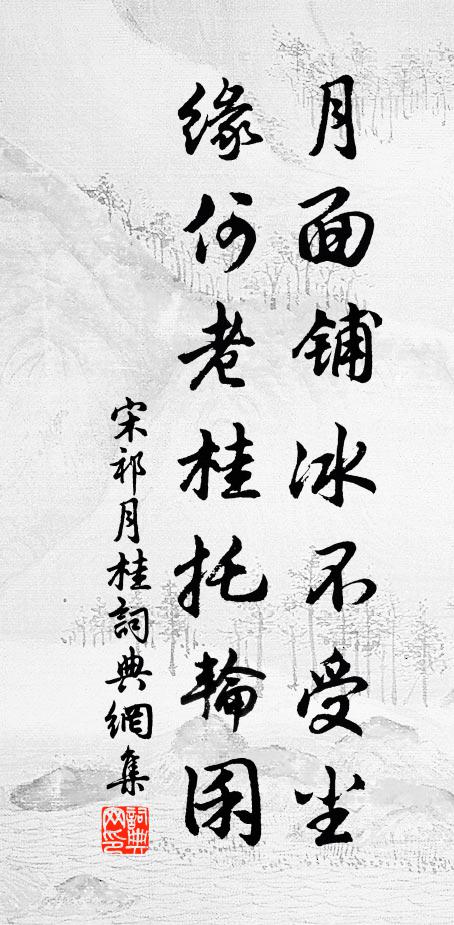 月面鋪冰不受尘
緣何老桂托輪囷
宋祁月桂詞典網集
詞典
网印